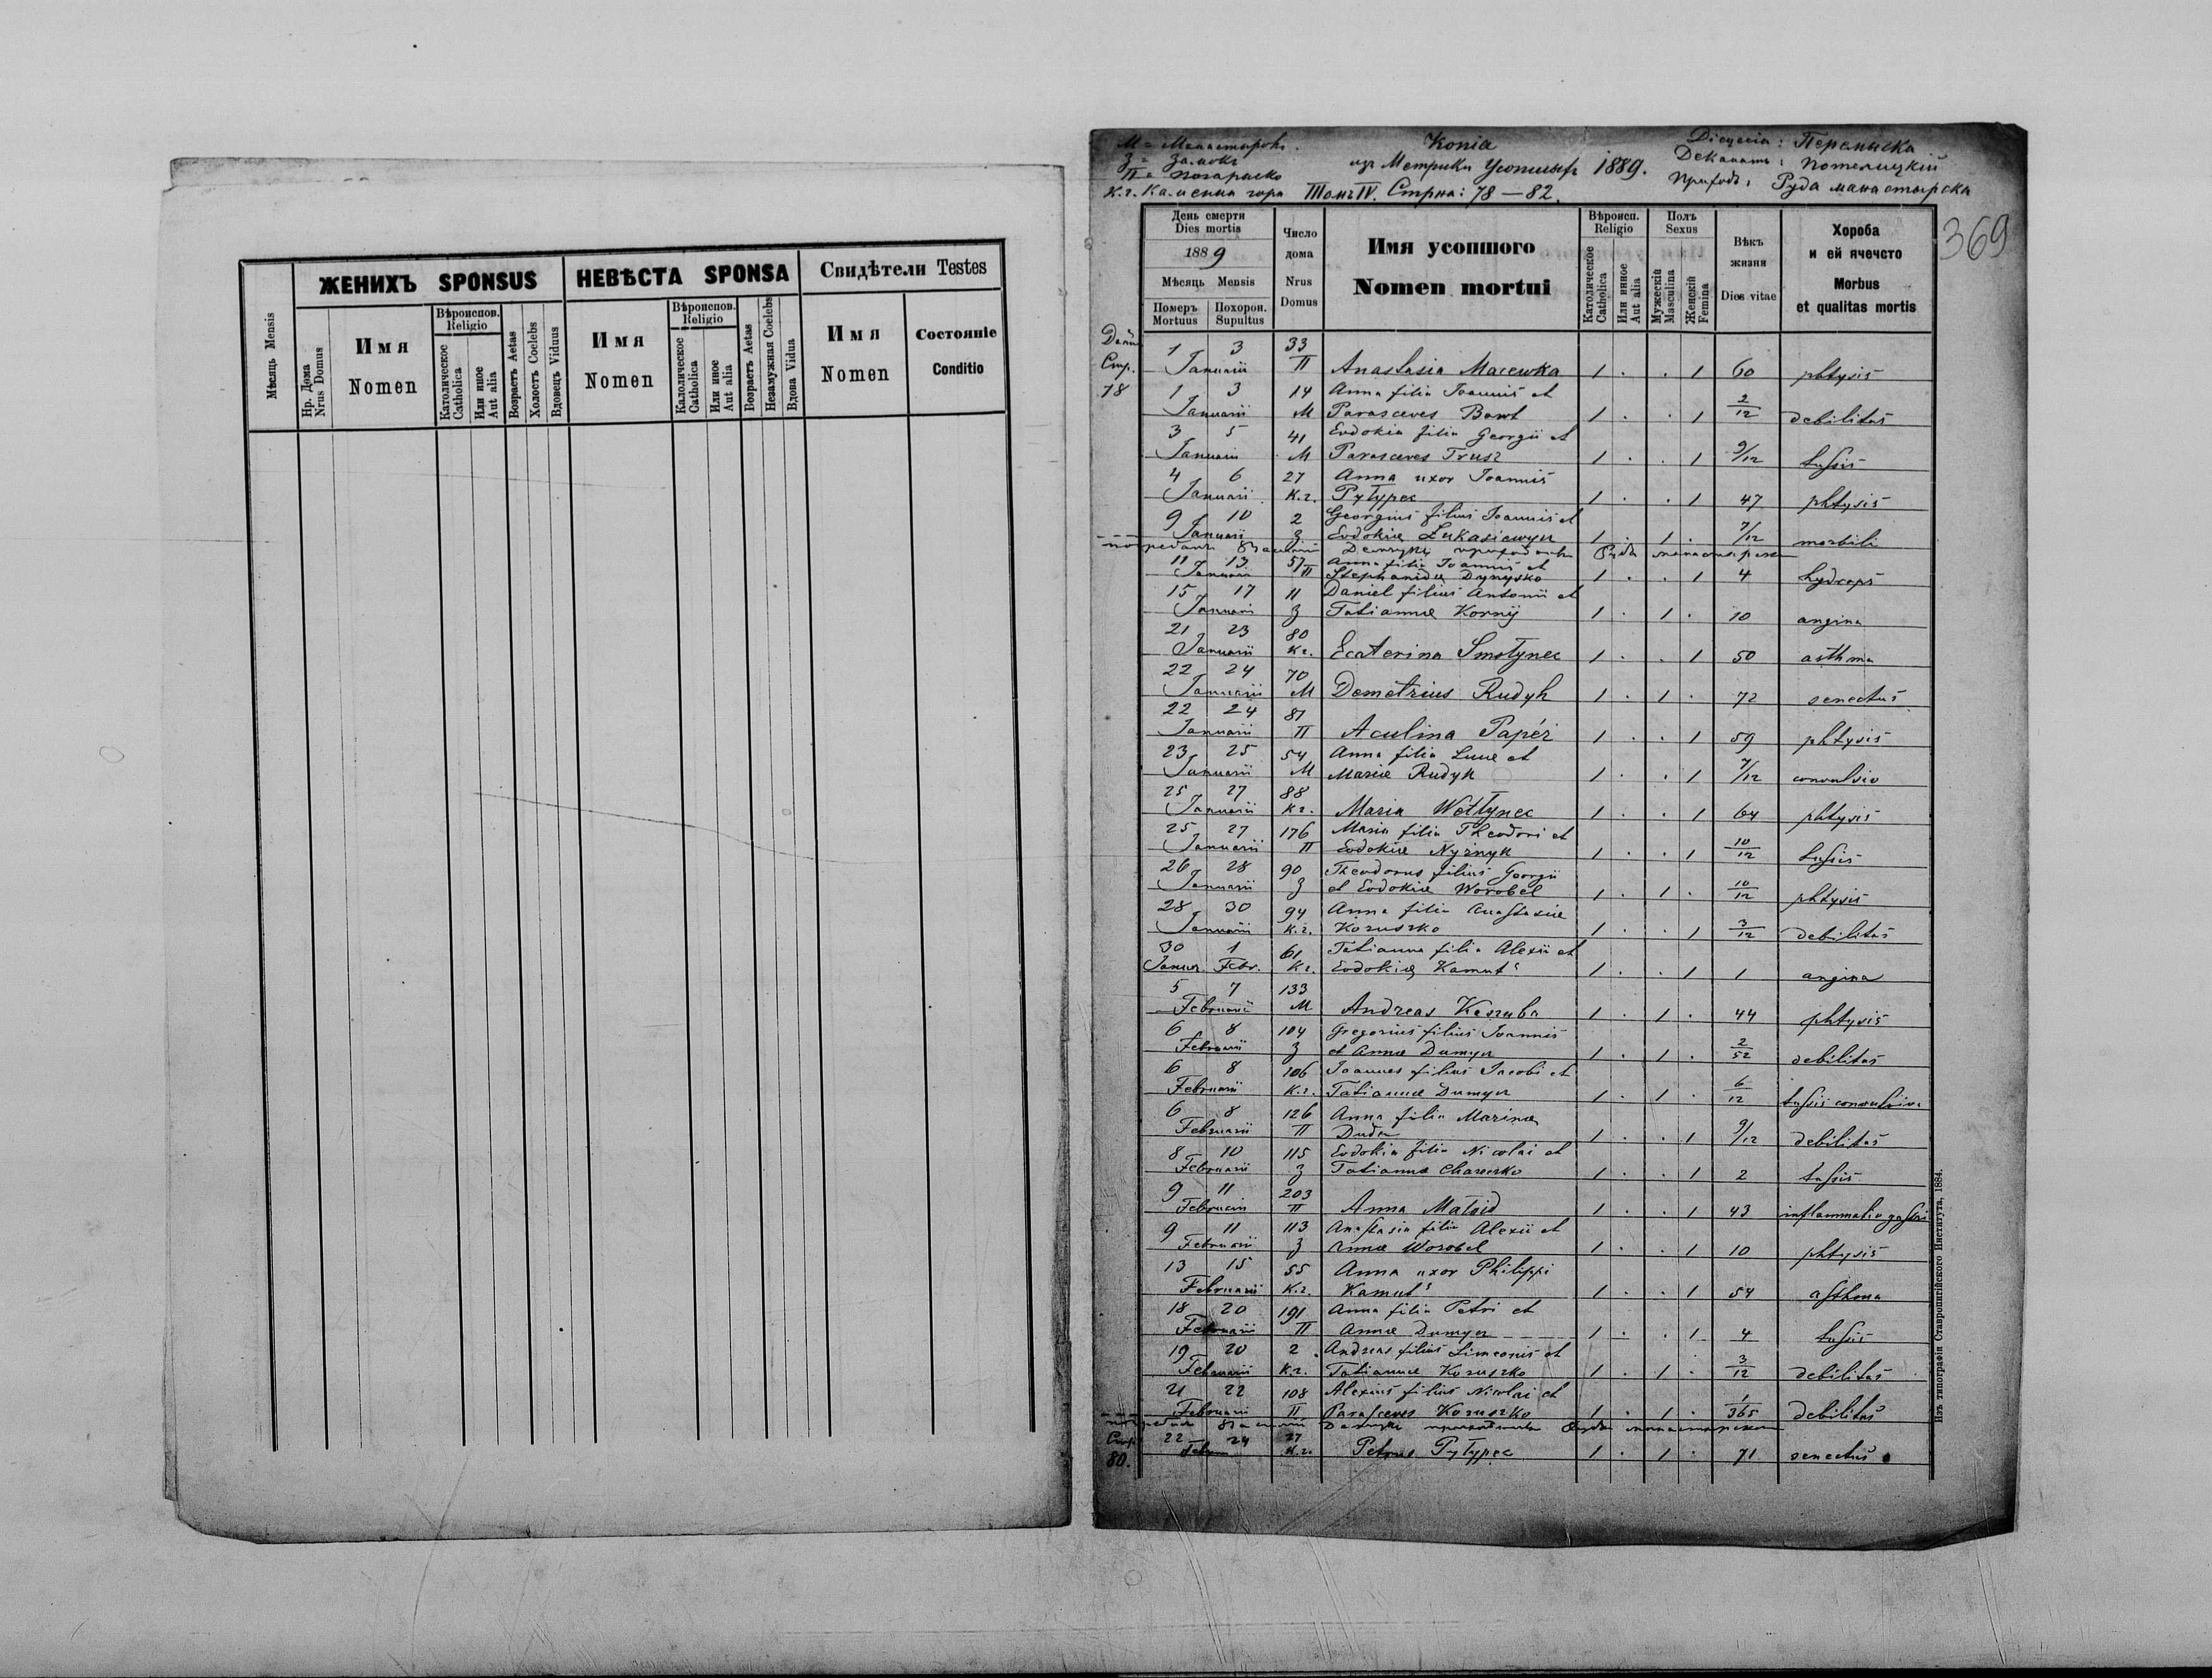 ЖЕНИХЪ SPONSUS
НЕВѢСТА SPONSA
Свидѣтели Testes
Мѣсяць Mensis
Нр. Дома
Nrus Domus
Имя
Nomen
Вѣроиспов.
Religio
Католическое
Catholica
Или иное
Aut alia
Возрастъ Aetas
Холостъ Coelebs
Вдовецъ Viduus
Имя
Nomen
Вѣроиспов.
Religio
Католическое
Catholica
Или иное
Aut alia
Возрастъ Aetas
Незамужная Coelebs
Вдова Vidua
Имя
Nomen
Состояніе
Conditio
М = Манастыровъ.
З = Замокъ
П =
К.г. Каменна гора
Копіа
изъ Метрики Усопшихъ 1889.
Томъ IV. Стрна: 78 — 82.
Діецесіа: Перемыска
Деканатъ: Потелицкій
Приходъ: Руда манастырска
369
День смерти
Dies mortis
1889
Мѣсяць Mensis
Померъ
Mortuus
Похорон.
Supultus
Число
дома
Nrus
Domus
Имя усопшого
Nomen mortui
Вѣроисп.
Religio
Католическое
Catholica
Или инное
Aut alia
Полъ
Sexus
Мужескій
Masculina
Женскій
Femina
Вѣкъ
жизни
Dies vitae
Хороба
и ей ячество
Morbus
et qualitas mortis
Стр.
78
1 3 33
Januarii П Anastasia Macewka 1 . . 1 60 phtysis
1 3 14 Anna filia Joannis et
Januarii М Parasceves Bawt 1 . . 1 2/12 debilitas
3 5 41 Evdokia filia Georgii et
Januarii М Parasceves Trusz 1 . . 1 9/12 tussis
4 6 27 Anna uxor Joannis
Januarii К.г. Pyłypec 1 . . 1 47 phtysis
9 10 2 Georgius filius Joannis et
Januarii З Evdokiæ Łukasiewycz 1 . 1 . 7/12 morbili
11 13 57 Anna filia Joannis et
Januarii П Stephanidæ Dynysko 1 . . 1 4 hydrops
15 17 11 Daniel filius Antonii et
Januarii З Tatiannæ Kornij 1 . 1 . 10 angina
21 23 80
Januarii К.г. Ecaterina Smołynec 1 . . 1 50 asthma
22 24 70
Januarii М Demetrius Rudyk 1 . 1 . 72 senectus
22 24 81
Januarii П Aculina Papéz 1 . . 1 59 phtysis
23 25 54 Anna filia Lucæ et
Januarii М Mariæ Rudyk 1 . . 1 7/12 convulsio
25 27 88
Januarii К.г. Maria Wołłynec 1 . . 1 64 phtysis
25 27 176 Maria filia Theodori et
Januarii П Evdokiæ Nyżnyk 1 . . 1 10/12 tussis
26 28 90 Theodorus filius Georgii
Januarii З et Evdokiæ Worobel 1 . 1 . 10/12 phtysis
28 30 94 Anna filia Anastasiæ
Januarii К.г. Kozuszko 1 . . 1 3/12 debilitas
30 1 61 Tatianna filia Alexii et
Januar. Febr. К.г. Evdokiæ Kamut 1 . . 1 1 angina
5 7 133
Februarii М Andreas Kaszuba 1 . 1 . 44 phtysis
6 8 104 Gregorius filius Joannis
Februarii З et Annæ Dumycz 1 . 1 . 2/52 debilitas
6 8 106 Joannes filius Jacobi et
Februarii К.г. Tatiannæ Dumycz 1 . 1 . 6/12 tussis convulsiva
6 8 126 Anna filia Marinæ
Februarii П Duda 1 . . 1 9/12 debilitas
8 10 115 Evdokia filia Nicolai et
Februarii З Tatiannæ 1 . . 1 2 tussis
9 11 203
Februarii П Anna Matoid 1 . . 1 43 inflammatio gastri
9 11 113 Anastasia filia Alexii et
Februarii З Annæ Worobel 1 . . 1 10 phtysis
13 15 55 Anna uxor Philippi
Februarii К.г. Kamut 1 . . 1 54 asthma
18 20 191 Anna filia Petri et
Februarii П Annæ Dumycz 1 . . 1 4 tussis
19 20 2 Andreas filius Simeonis et
Februarii К.г. Tatiannæ Kozuszko 1 . 1 . 3/12 debilitas
21 22 108 Alexius filius Nicolai et
Februarii П Parasceves Kozuszko 1 . 1 . 1/365 debilitas
Стр.
80.
22 24 27
Februarii К.г. Petrus Pyłypec 1 . 1 . 71 senectus
Изъ типографіи Ставропигійского Института, 1884.